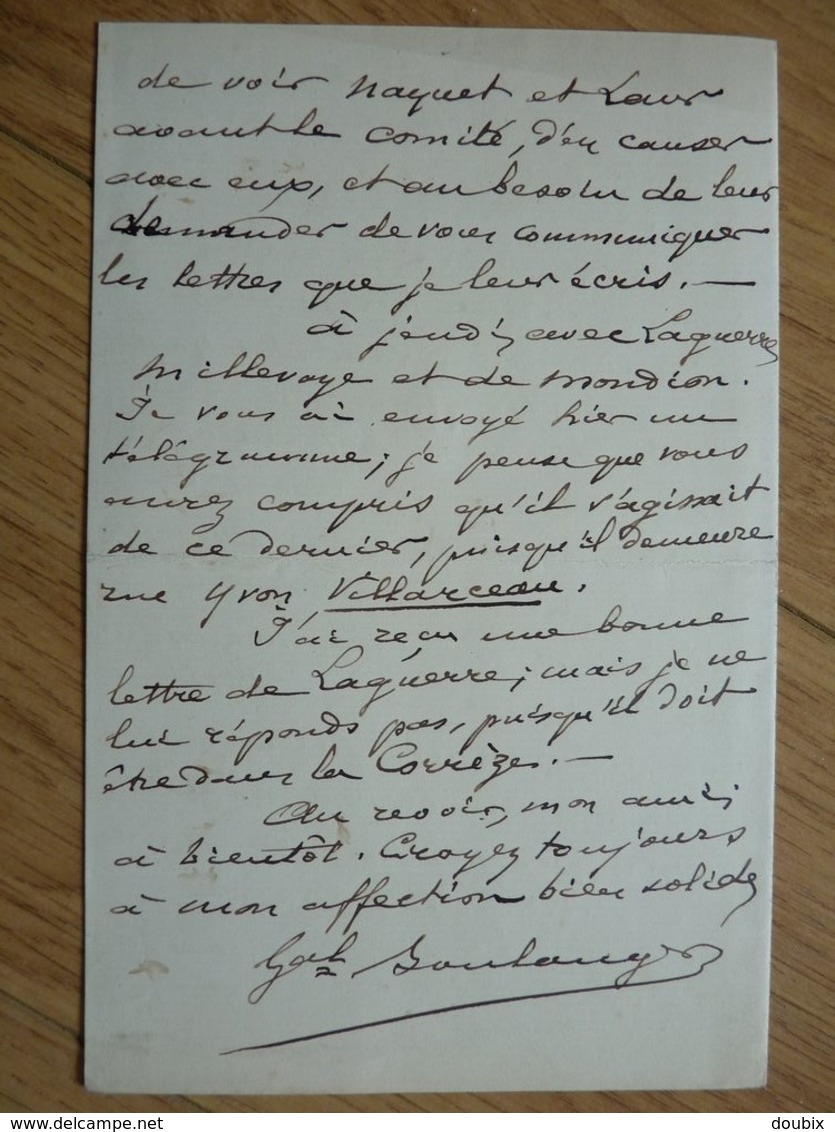 de voir Naquet et Laur
avant le comité, d'en causer
avec eux, et au besoin de leur
demander de vous communiquer
les lettres que je leur écris. —
à jeudi, avec Laguerre,
Millevoye et de Mondion.
Je vous ai envoyé hier un
télégramme; je pense que vous
aurez compris qu'il s'agissait
de ce dernier, puisqu'il demeure
rue Yvon Villarceau.
J'ai reçu une bonne
lettre de Laguerre; mais je ne
lui réponds pas, puisqu'il doit
être dans la Corrèze. —
Au revoir, mon ami;
à bientôt. Croyez toujours
à mon affection bien solide,
Gal Boulanger
delcampe.net
doubix